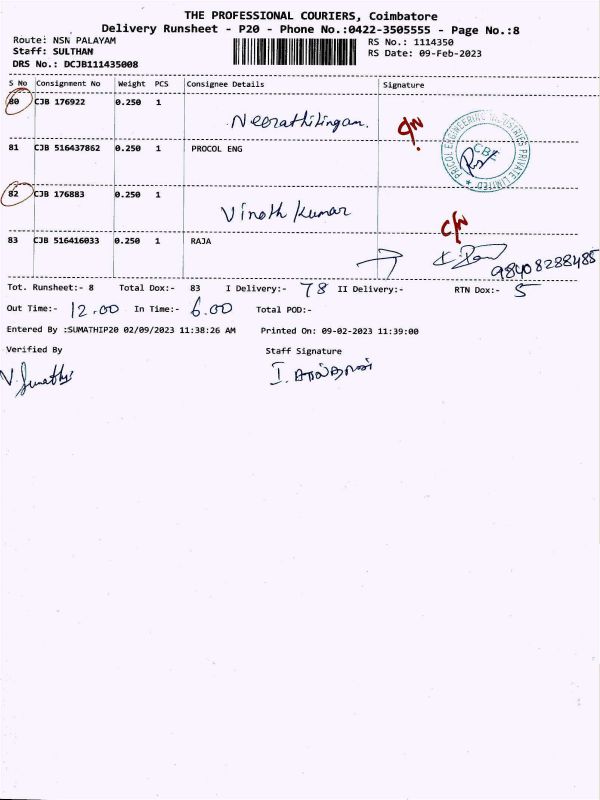 THE PROFESSIONAL COURIERS, Coimbatore
Delivery Runsheet - P20 - Phone No.:0422-3505555 - Page No.:8
Route: NSN PALAYAM RS No.: 1114350
Staff: SULTHAN RS Date: 09-Feb-2023
DRS No.: DCJB111435008
S No Consignment No Weight PCS Consignee Details Signature
80 CJB 176922 0.250 1
Neerathilingam. C/N
81 CJB 516437862 0.250 1 PROCOL ENG
PRICOL ENGINEERING INDUSTRIES PRIVATE LIMITED ★
CBE
82 CJB 176883 0.250 1
Vinoth Kumar C/N
83 CJB 516416033 0.250 1 RAJA
98408288485
Tot. Runsheet:- 8 Total Dox:- 83 I Delivery:- 78 II Delivery:- RTN Dox:- 5
Out Time:- 12.00 In Time:- 6.00 Total POD:-
Entered By :SUMATHIP20 02/09/2023 11:38:26 AM Printed On: 09-02-2023 11:39:00
Verified By Staff Signature
V. Sumathi